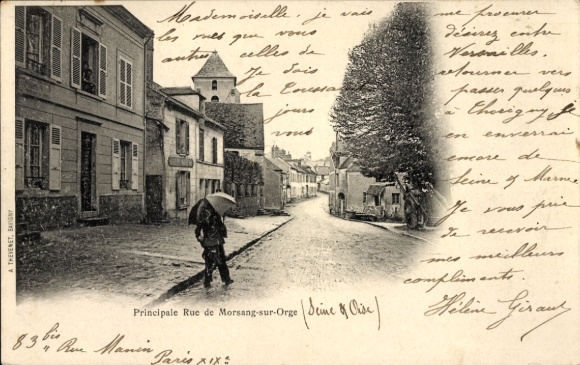 Mademoiselle, je vais me procurer
les vues que vous désirez entre
autres celles de Versailles.
Je dois retourner vers
la Toussaint passer quelques
jours à Thorigny
vous en enverrai
encore de
Seine & Marne
Je vous prie
de recevoir
mes meilleurs
compliments.
Hélène Giraud
A THEVENET, SAVIGNY
Principale Rue de Morsang-sur-Orge (Seine & Oise)
83 bis Rue Manin
Paris XIXe